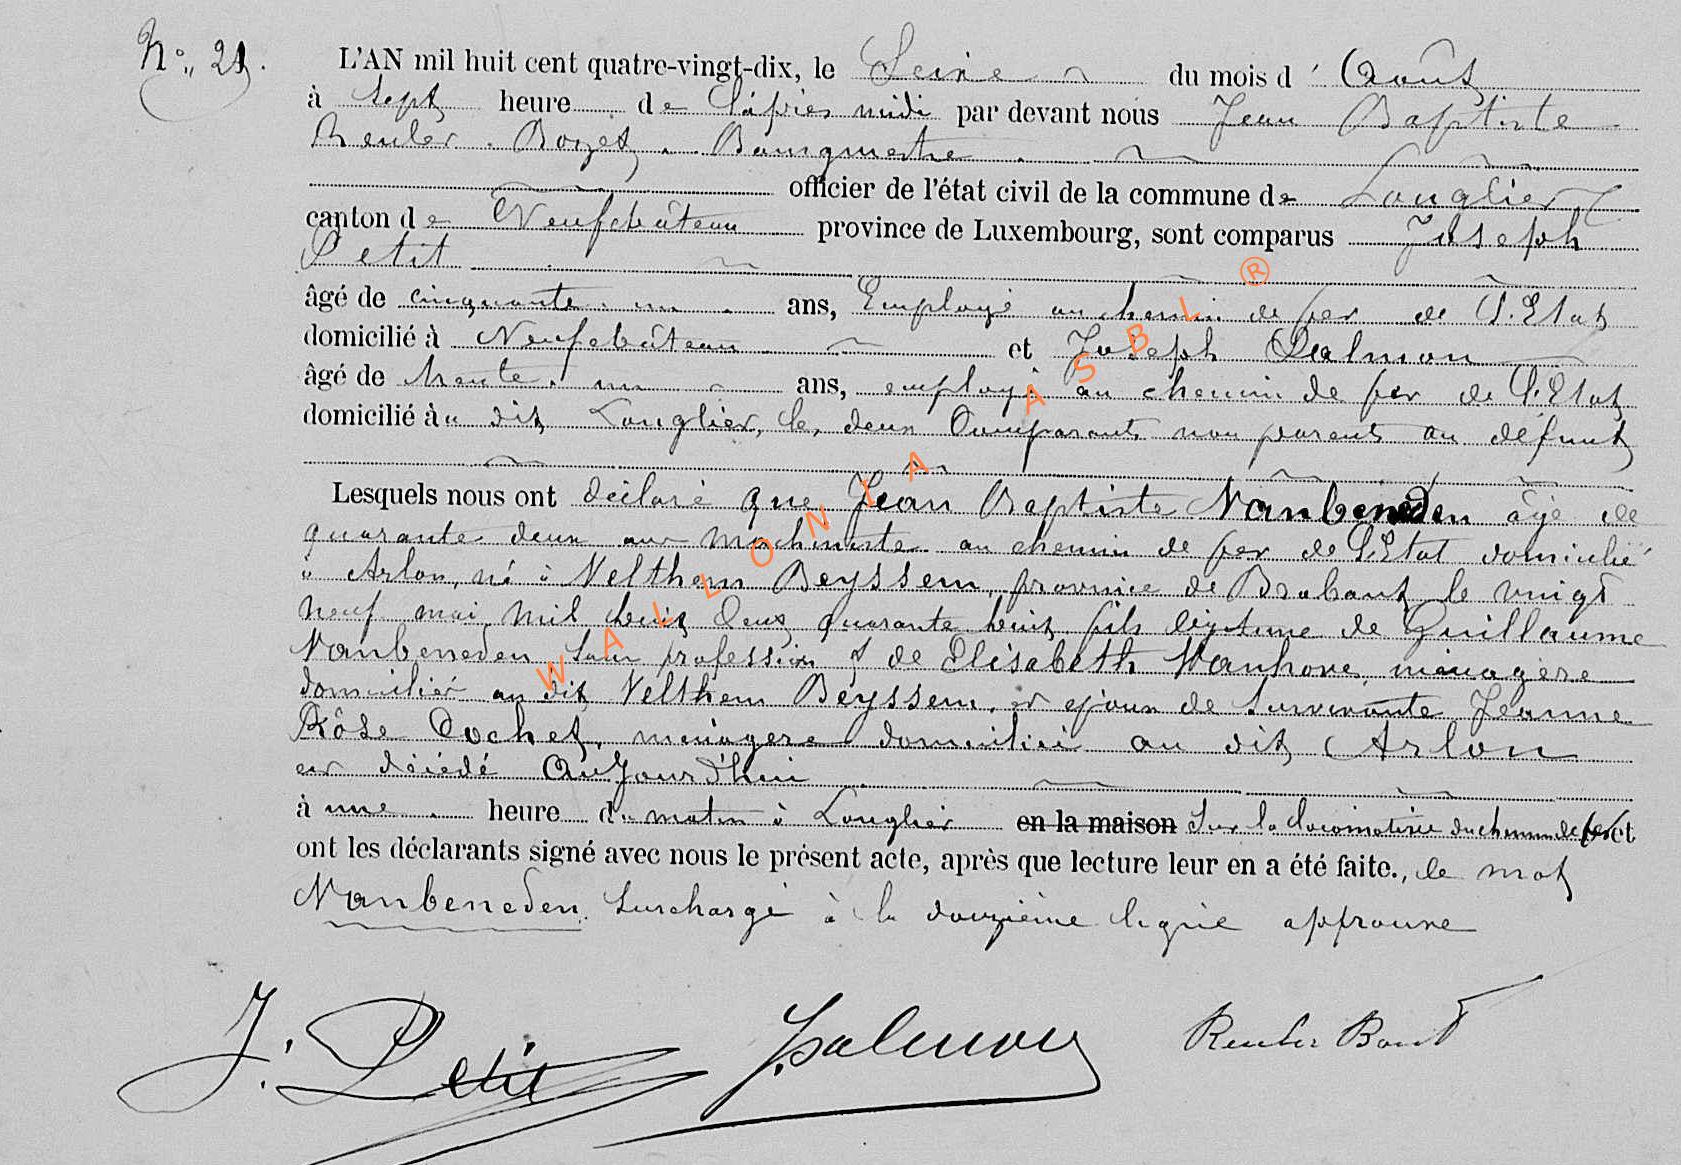 N° 21.
L'AN mil huit cent quatre-vingt-dix, le Seize du mois d' Août
à Sept heure de l'après midi par devant nous Jean Baptiste
Reuler. Bourgmestre
officier de l'état civil de la commune de Longlier
canton de Neufchâteau province de Luxembourg, sont comparus Joseph
Petit
âgé de cinquante. un ans, Employé au chemin de fer de l'Etat
domicilié à Neufchâteau et Joseph Dalmon
âgé de trente. un ans, employé au chemin de fer de l'Etat
domicilié àu dit Longlier, les deux Comparants non parents au défunt
Lesquels nous ont déclaré que Jean Baptiste Vanbeneden âgé de
quarante deux ans Machiniste au chemin de fer de l'Etat domicilié
à Arlon, né à Velthem Beyssem, province de Brabant le vingt
neuf mai mil huit Cent quarante huit, fils légitime de Guillaume
Vanbeneden sans profession & de Elisabeth Vanhove, ménagère
domiciliés au dit Velthem Beyssem, et époux de survivante Jeanne
Rôse Cochet, ménagère domiciliée au dit Arlon
est décédé Aujourd'hui
à une heure du matin à Longlier en la maison sur la locomotive du chemin de fer et
ont les déclarants signé avec nous le présent acte, après que lecture leur en a été faite., le mot
Vanbeneden surchargé à la douzième ligne approuvé
J. Petit J. Dalmon Reuler
WALLONIA ASBL ®